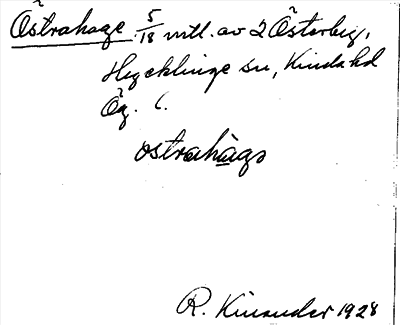 Östrahage 5/18 mtl. av 2 Österby,
Hycklinge sn, Kinda hd
Ög. (.
ostrahàgo
R. Kinander 1928